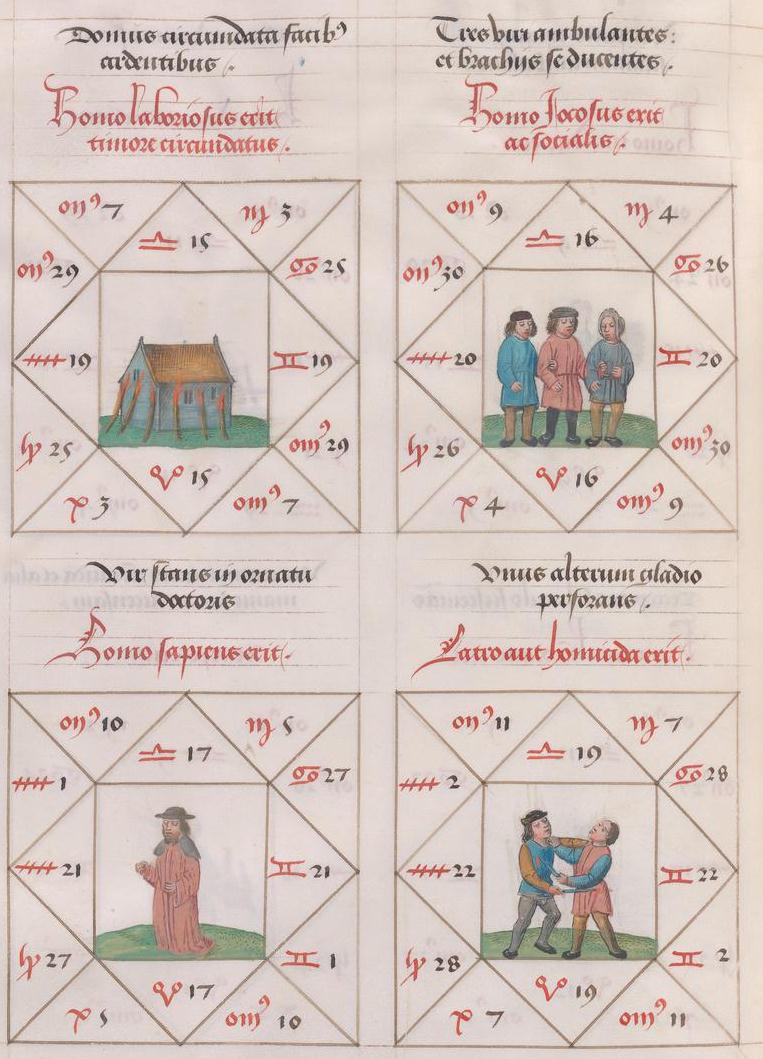 Domus circundata facibꝰ
ardentibus.
Homo laboriosus erit
timore circundatus.
omꝰ 7
♏ 3
♎ 15
omꝰ 29
♋ 25
♒ 19
♊ 19
♑ 25
omꝰ 29
♈ 15
♓ 3
omꝰ 7
Tres viri ambulantes:
et brachijs se ducentes.
Homo Jocosus erit
ac socialis.
omꝰ 9
♏ 4
♎ 16
omꝰ 30
♋ 26
♒ 20
♊ 20
♑ 26
omꝰ 30
♈ 16
♓ 4
omꝰ 9
Vir stans in ornatu
doctoris
Homo sapiens erit.
omꝰ 10
♏ 5
♎ 17
♒ 1
♋ 27
♒ 21
♊ 21
♑ 27
♊ 1
♈ 17
♓ 5
omꝰ 10
Vnus alterum gladio
perforans.
Latro aut homicida erit.
omꝰ 11
♏ 7
♎ 19
♒ 2
♋ 28
♒ 22
♊ 22
♑ 28
♊ 2
♈ 19
♓ 7
omꝰ 11